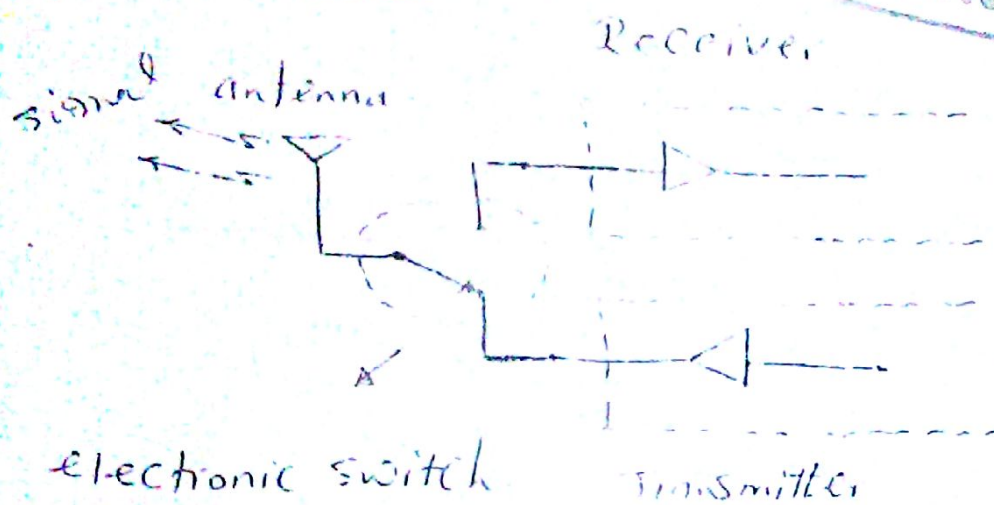 Receiver
signal antenna
A
electronic switch
Transmitter